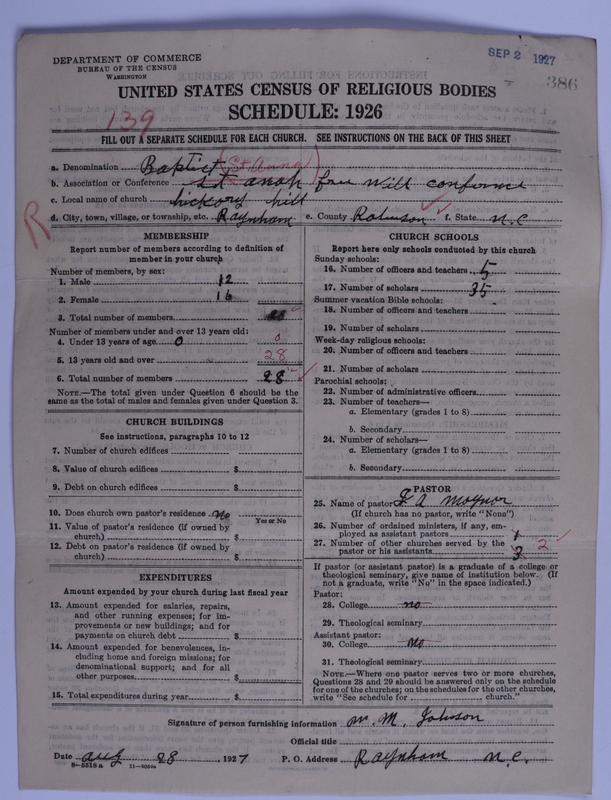 DEPARTMENT OF COMMERCE
BUREAU OF THE CENSUS
WASHINGTON
SEP 2 1927
386
UNITED STATES CENSUS OF RELIGIOUS BODIES
SCHEDULE: 1926
139
FILL OUT A SEPARATE SCHEDULE FOR EACH CHURCH. SEE INSTRUCTIONS ON THE BACK OF THIS SHEET
a. Denomination Baptist (St Anna)
b. Association or Conference St anah free Will
c. Local name of church hickory hill
d. City, town, village, or township, etc. Raynham e. County Robinson f. State N.C
R
MEMBERSHIP
Report number of members according to definition of
member in your church
Number of members, by sex:
1. Male 12
2. Female 16
3. Total number of members
Number of members under and over 13 years old:
4. Under 13 years of age 0 0
5. 13 years old and over 28
6. Total number of members 28
NOTE.—The total given under Question 6 should be
same as the total of males and females given under Question 3.
CHURCH BUILDINGS
See instructions, paragraphs 10 to 12
7. Number of church edifices
8. Value of church edifices $
9. Debt on church edifices $
10. Does church own pastor's residence no
Yes or No
11. Value of pastor's residence (if owned by
church) $
12. Debt on pastor's residence (if owned by
church) $
EXPENDITURES
Amount expended by your church during last fiscal year
13. Amount expended for salaries, repairs,
and other running expenses; for im-
provements or new buildings; and for
payments on church debt $
14. Amount expended for benevolences, in-
cluding home and foreign missions; for
denominational support; and for all
other purposes $
15. Total expenditures during year $
CHURCH SCHOOLS
Report here only schools conducted by this church
Sunday schools:
16. Number of officers and teachers 5
17. Number of scholars 35
Summer vacation Bible schools:
18. Number of officers and teachers
19. Number of scholars
Week-day religious schools:
20. Number of officers and teachers
21. Number of scholars
Parochial schools:
22. Number of administrative officers
23. Number of teachers—
a. Elementary (grades 1 to 8)
b. Secondary
24. Number of scholars—
a. Elementary (grades 1 to 8)
b. Secondary
PASTOR
25. Name of pastor F A Moynor
(If church has no pastor, write "None")
26. Number of ordained ministers, if any, em-
ployed as assistant pastors 1
27. Number of other churches served by the
pastor or his assistants 3 2
If pastor (or assistant pastor) is a graduate of a college or
theological seminary, give name of institution below. (If
not a graduate, write "No" in the space indicated.)
Pastor:
28. College no
29. Theological seminary
Assistant pastor:
30. College no
31. Theological seminary
NOTE.—Where one pastor serves two or more churches,
Questions 28 and 29 should be answered only on the schedule
for one of the churches; on the schedules for the other churches,
write "See schedule for church."
Signature of person furnishing information W. M. Johnson
Official title
Date aug 28, 1927 P. O. Address Raynham N.C.
8—5518a 11—4059a